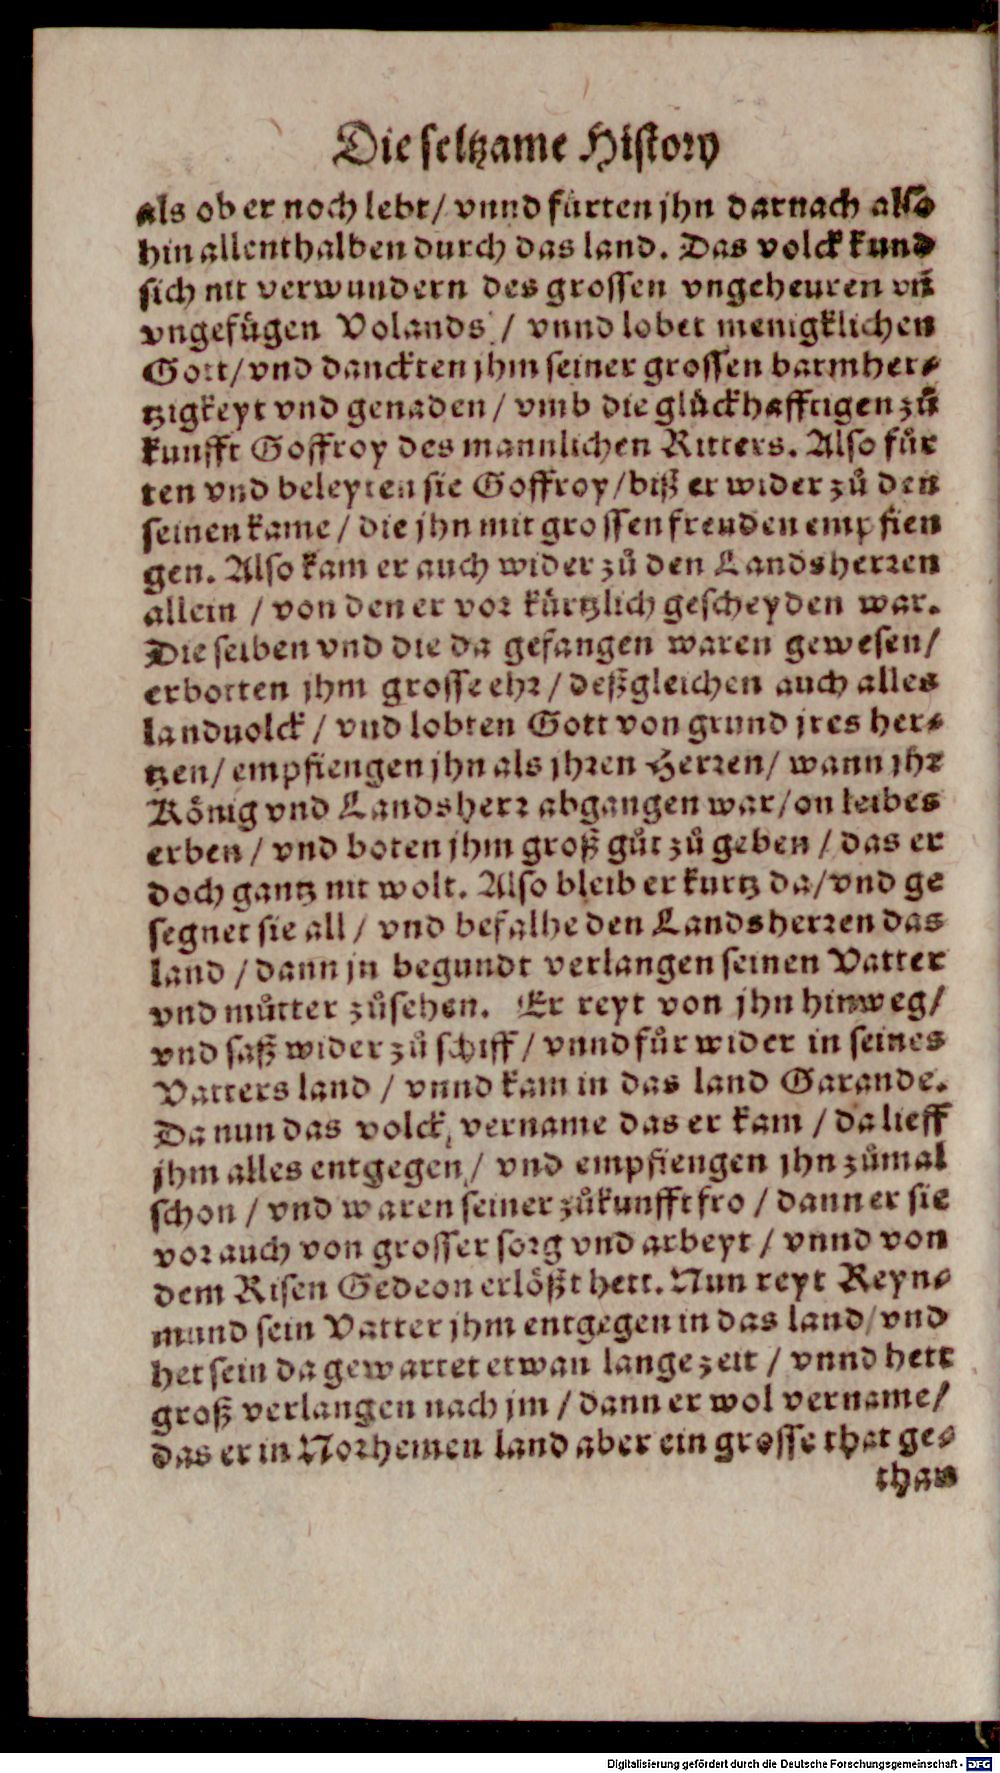 Die seltzame History
als ob er noch lebt/ vnnd fürten jhn darnach also
hin allenthalben durch das land. Das volck kund
sich nit verwundern des grossen vngeheuren vñ
vngefügen Volands / vnnd lobet menigklichen
Gott/ vnd danckten jhm seiner grossen barmher⸗
tzigkeyt vnd genaden / vmb die glückhafftigen zů
kunfft Goffroy des mannlichen Ritters. Also fůr
ten vnd beleyten sie Goffroy/ biß er wider zů den
seinen kame / die jhn mit grossen freuden empfien
gen. Also kam er auch wider zů den Landsherren
allein / von den er vor kürtzlich gescheyden war.
Die selben vnd die da gefangen waren gewesen/
erbotten jhm grosse ehr / deßgleichen auch alles
landuolck / vnd lobten Gott von grund jres her⸗
tzen/ empfiengen jhn als jhren Herren/ wann jhr
König vnd Landsherr abgangen war/ on leibes
erben / vnd boten jhm groß gůt zů geben / das er
doch gantz nit wolt. Also bleib er kurtz da/ vnd ge
segnet sie all / vnd befalhe den Landsherren das
land / dann jn begundt verlangen seinen Vatter
vnd můtter zůsehen. Er reyt von jhn hinweg/
vnd saß wider zů schiff / vnnd fůr wider in seines
Vatters land / vnnd kam in das land Garande.
Da nun das volck vername das er kam / da lieff
jhm alles entgegen / vnd empfiengen jhn zůmal
schon / vnd waren seiner zůkunfft fro / dann er sie
vor auch von grosser sorg vnd arbeyt / vnnd von
dem Risen Gedeon erlößt hett. Nun reyt Reyn⸗
mund sein Vatter jhm entgegen in das land/ vnd
het sein da gewartet etwan lange zeit / vnnd hett
groß verlangen nach jm / dann er wol vername/
das er in Norhemen land aber ein grosse that ge⸗
than
Digitalisierung gefördert durch die Deutsche Forschungsgemeinschaft - DFG